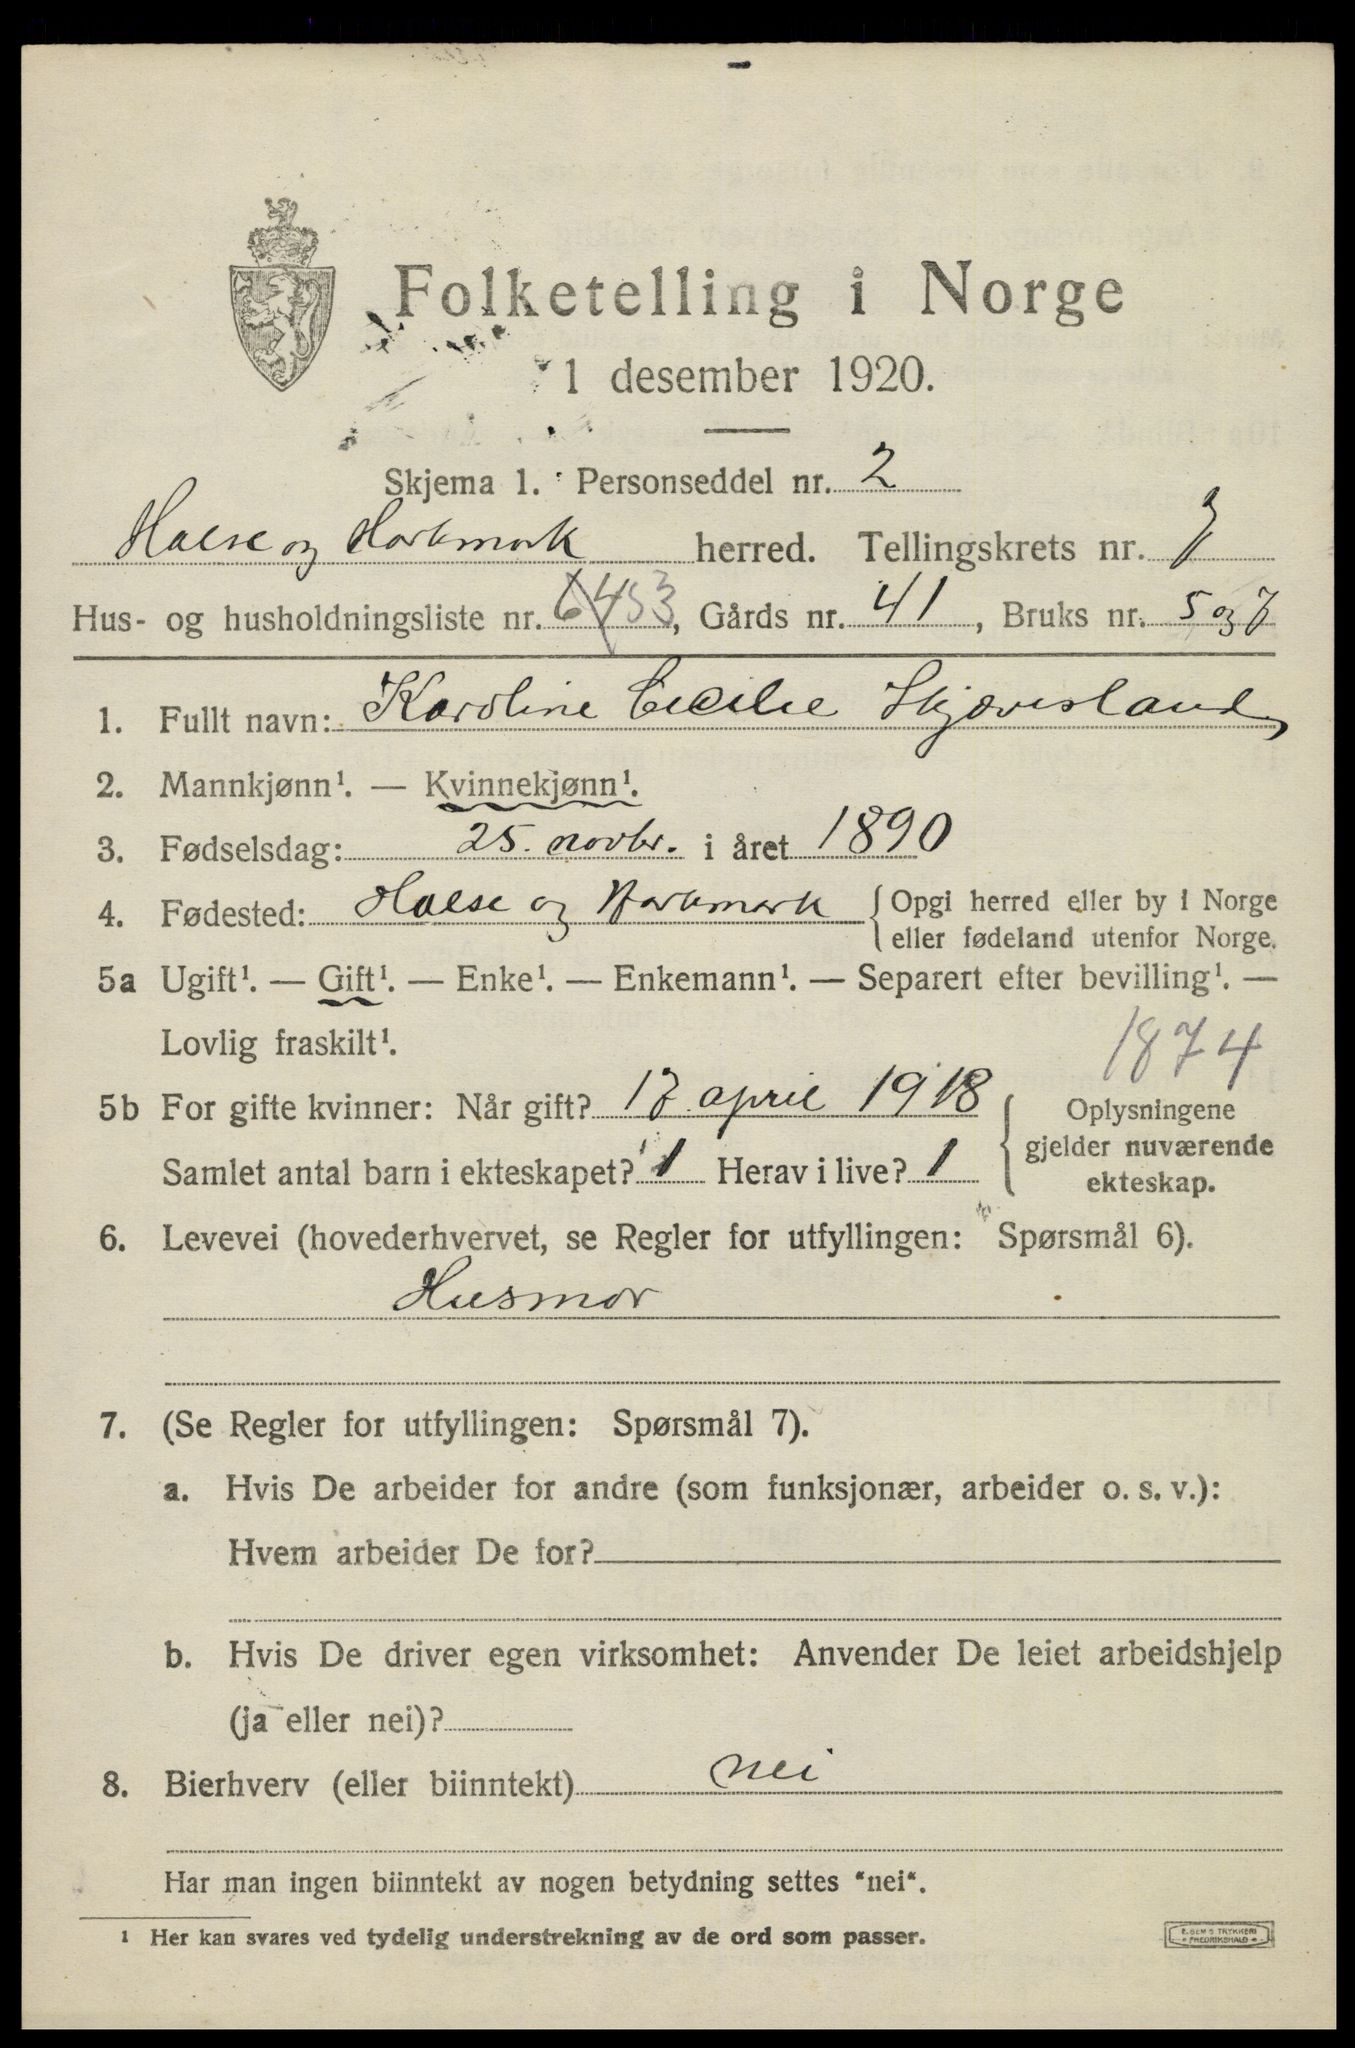 Folketelling i Norge
1 desember 1920.
Skjema 1. Personseddel nr. 2
Halse og Harkmark herred. Tellingskrets nr. 7
Hus- og husholdningsliste nr. 64 53, Gårds nr. 41, Bruks nr. 5 og 7
1. Fullt navn: Karoline Cecilie Skjævesland,
2. Mannkjønn¹. — Kvinnekjønn¹.
3. Fødselsdag: 25. novbr. i året 1890
4. Fødested: Halse og Harkmark {Opgi herred eller by i Norge
eller fødeland utenfor Norge.
5a Ugift¹. — Gift¹. — Enke¹. — Enkemann¹. — Separert efter bevilling¹. —
Lovlig fraskilt¹.
1874
5b For gifte kvinner: Når gift? 17 april 1918 { Oplysningene
gjelder nuværende
Samlet antal barn i ekteskapet? 1 Herav i live? 1
ekteskap.
6. Levevei (hovederhvervet, se Regler for utfyllingen: Spørsmål 6).
Husmor
7. (Se Regler for utfyllingen: Spørsmål 7).
a. Hvis De arbeider for andre (som funksjonær, arbeider o. s. v.):
Hvem arbeider De for?
b. Hvis De driver egen virksomhet: Anvender De leiet arbeidshjelp
(ja eller nei)?
8. Bierhverv (eller biinntekt) nei
Har man ingen biinntekt av nogen betydning settes "nei".
¹ Her kan svares ved tydelig understrekning av de ord som passer.
E. SEM'S TRYKKERI
FREDRIKSHALD